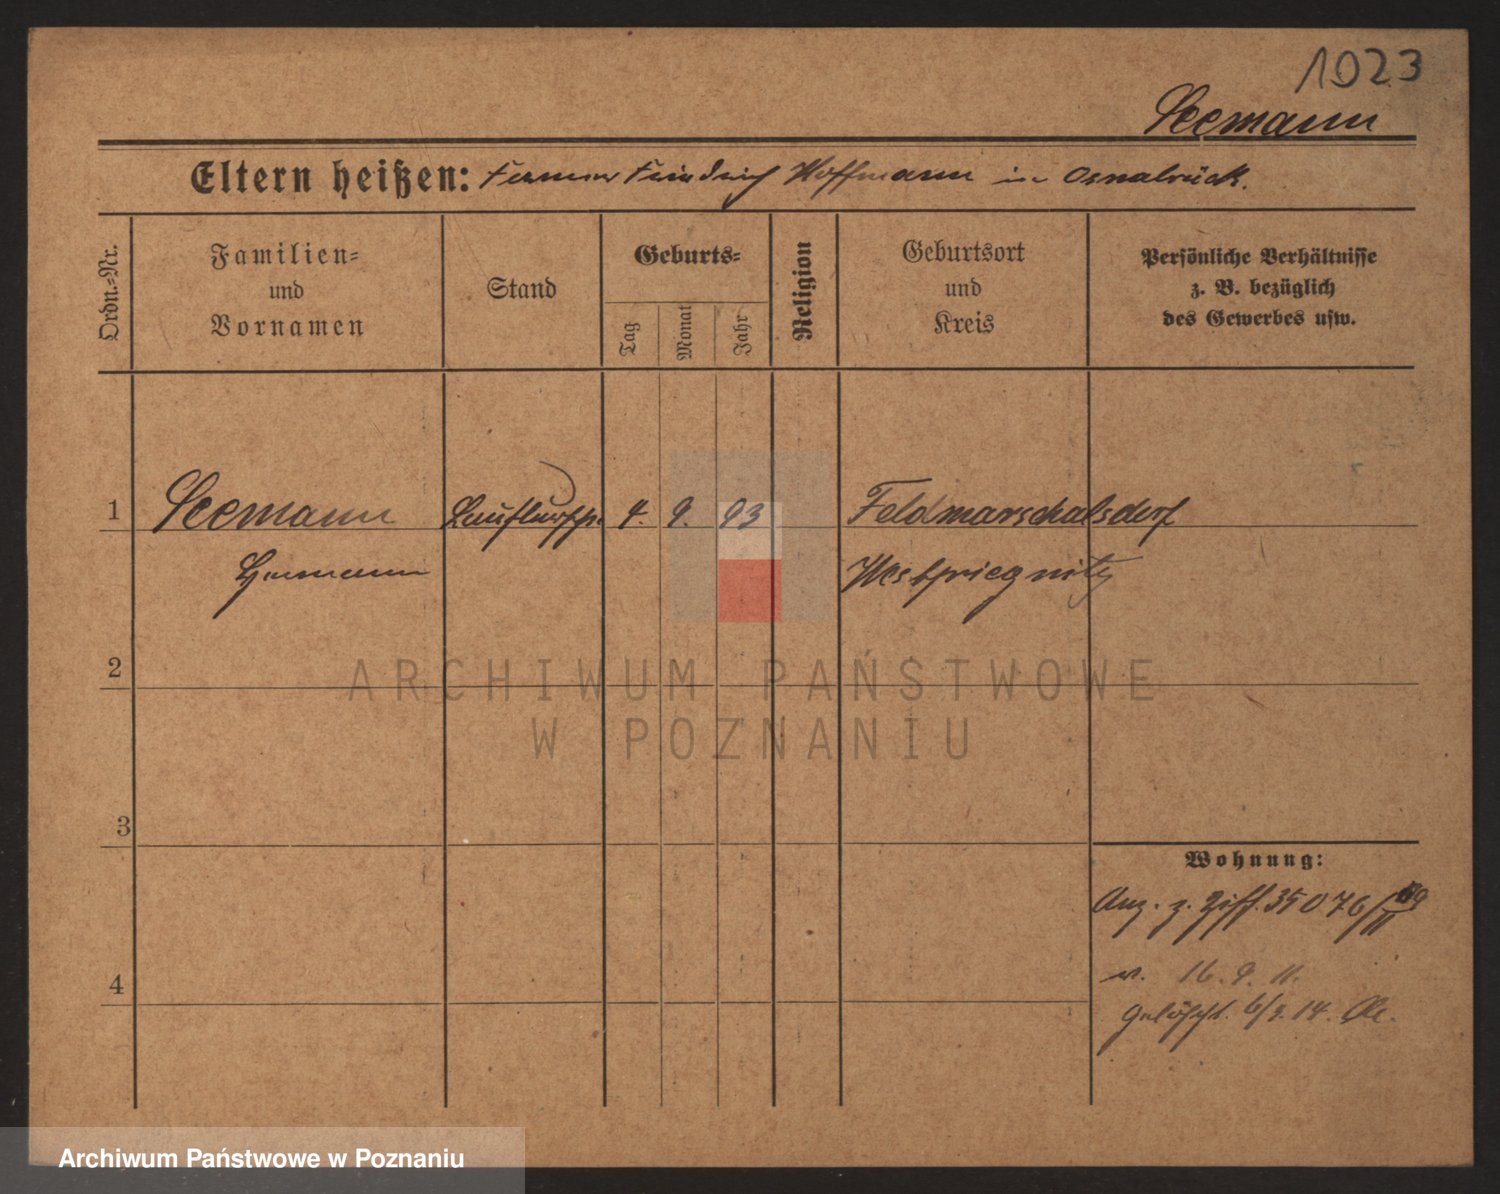 1023
Seemann
Eltern heißen: Friedrich Hoffmann in Osnabrück.
Ordn.-Nr.
Familien-
und
Vornamen
Stand
Geburts-
Tag
Monat
Jahr
Religion
Geburtsort
und
Kreis
Persönliche Verhältnisse
z. B. bezüglich
des Gewerbes usw.
1
Seemann
4. 9. 93
Feldmarschalsdorf
Hermann
Westpriegnitz
2
ARCHIWUM PAŃSTWOWE
W POZNANIU
3
Wohnung:
Anz. z. Ziff. 35076/II
4
v. 16. 9. 11.
Gelöscht. 6/3. 14.
Archiwum Państwowe w Poznaniu